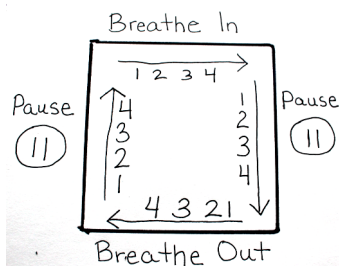 Breathe In
1 2 3 4
Pause
4
3
2
1
1
2
3
4
Pause
4 3 2 1
Breathe Out